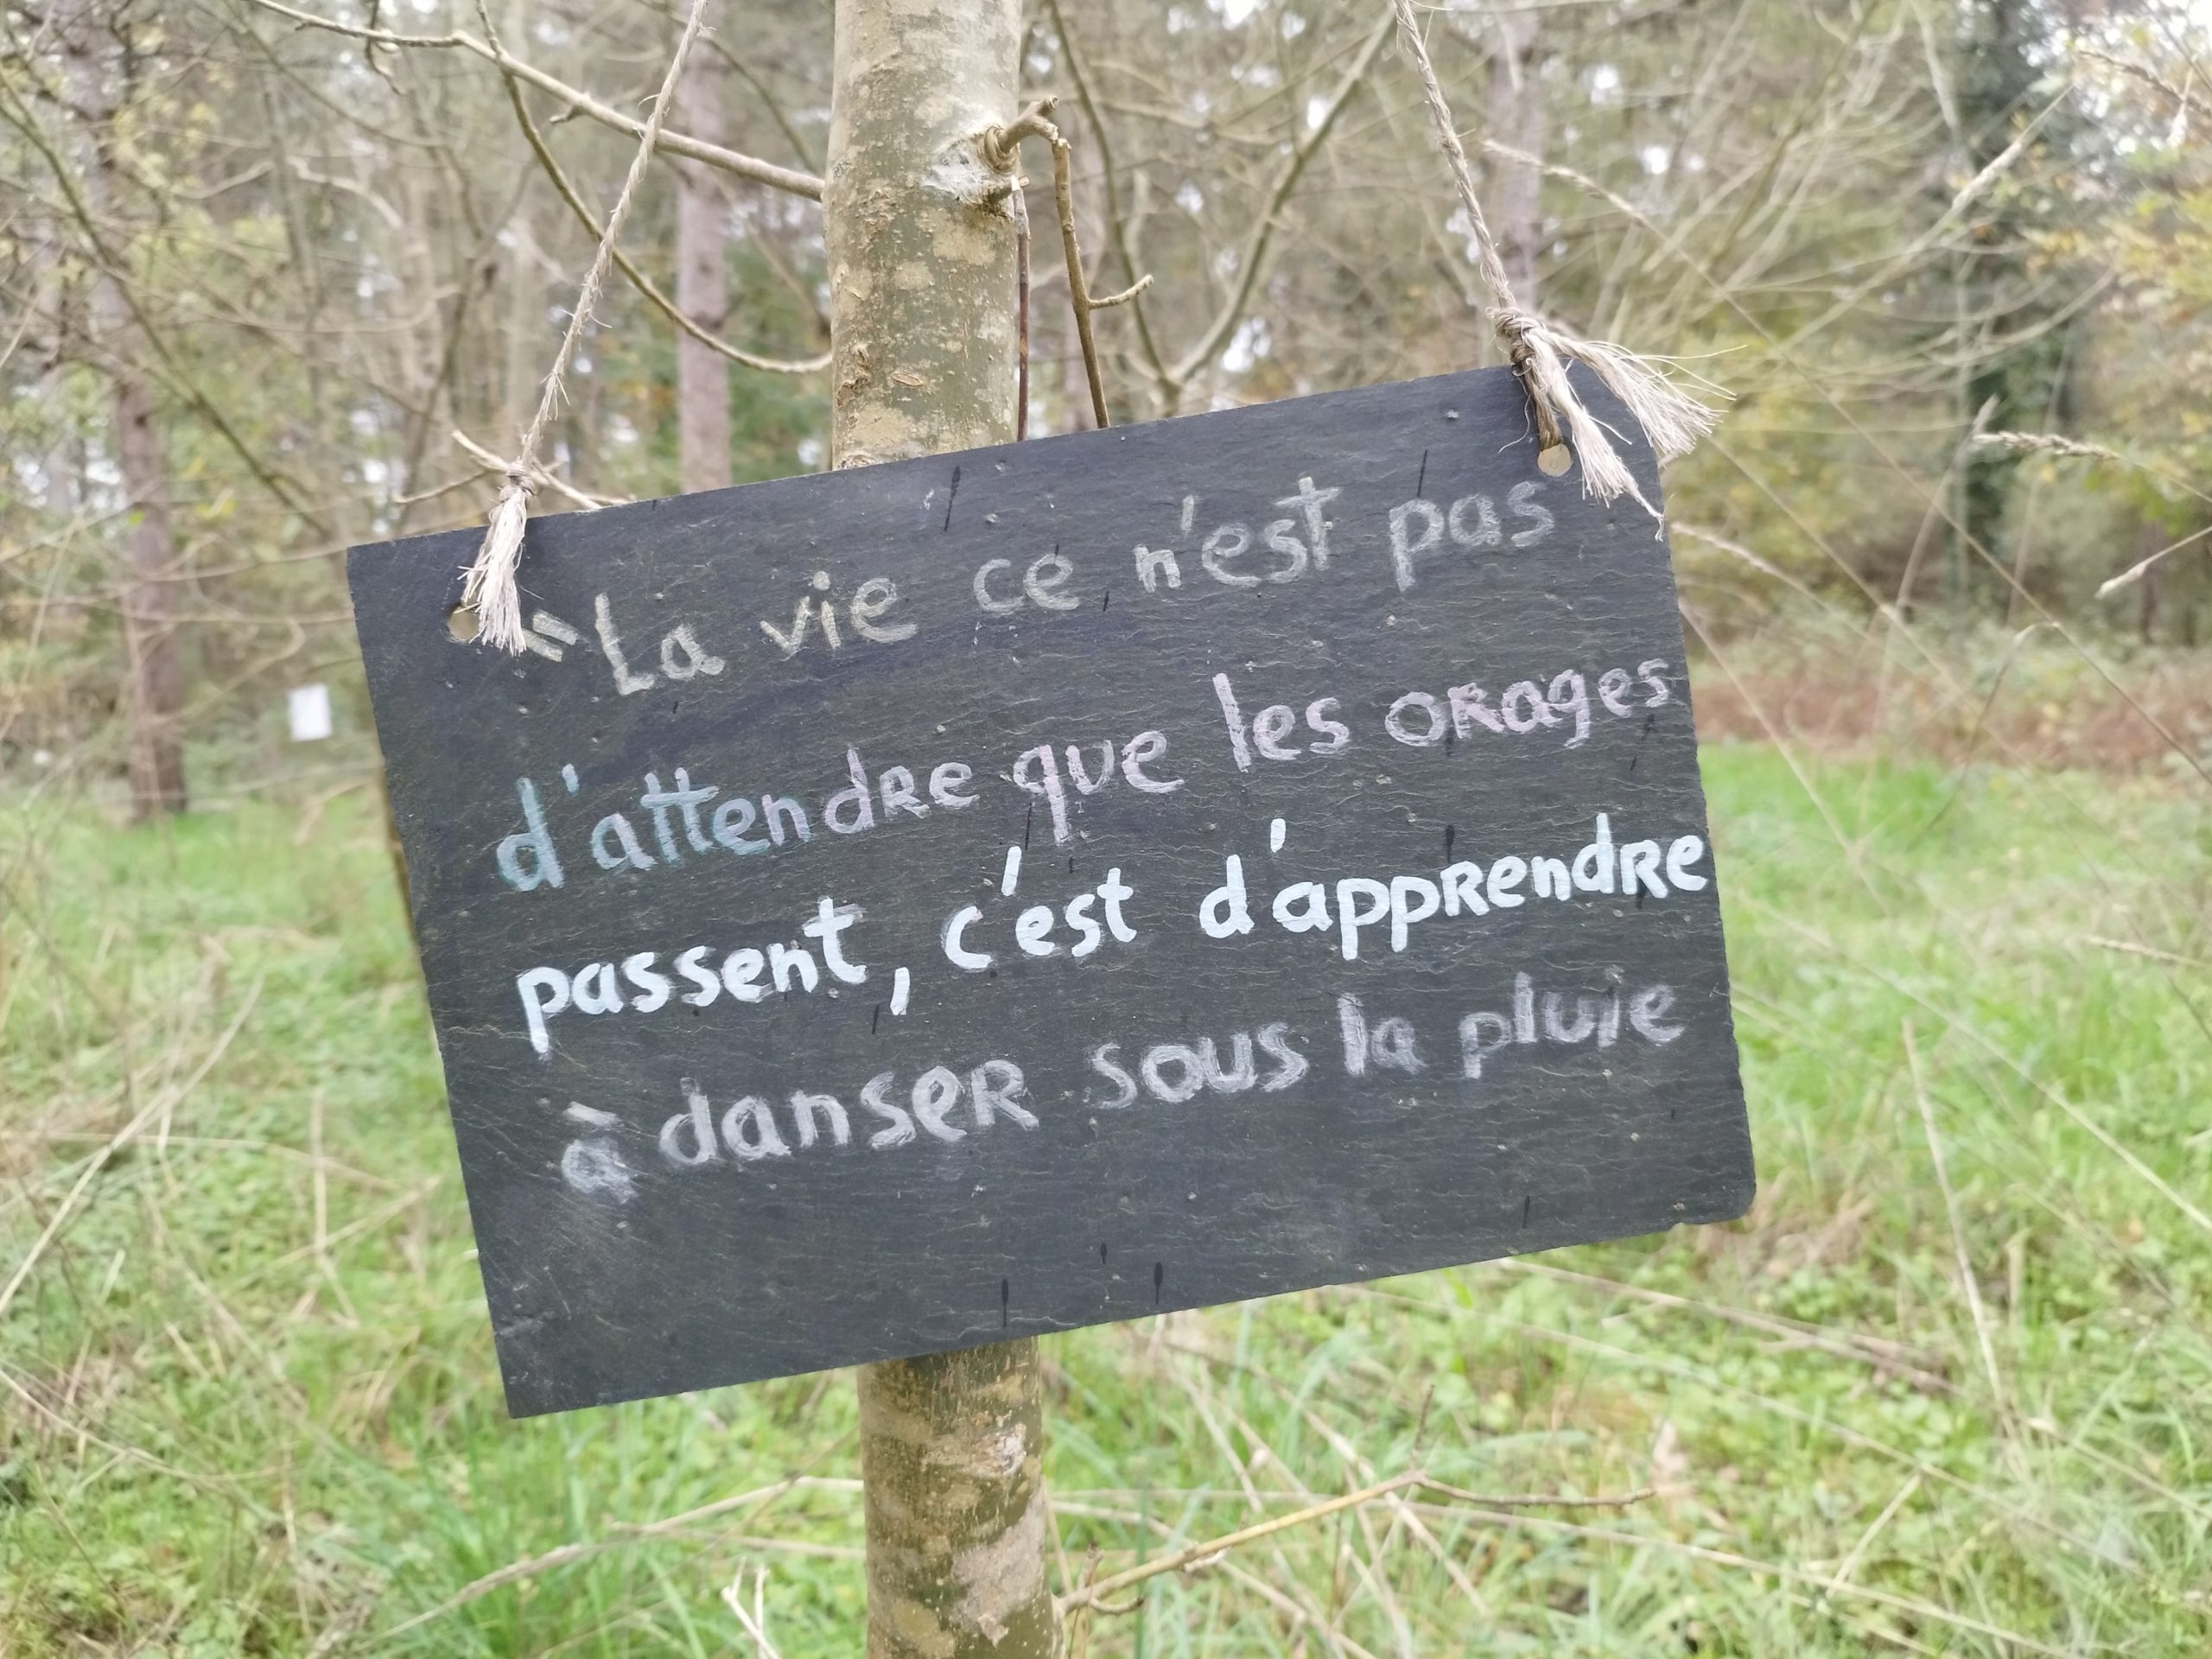 "La vie ce n'est pas
d'attendre que les orages
passent, c'est d'apprendre
à danser sous la pluie